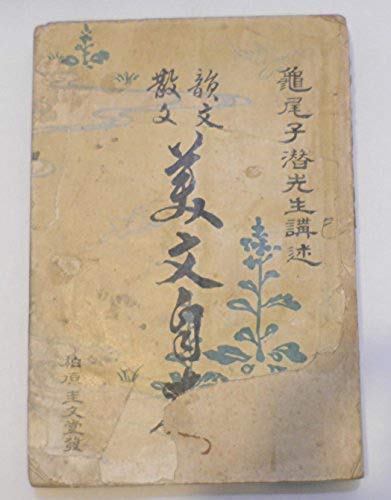 龜尾子潜先生講述
韻文
散文
美文自
柏原圭文堂發